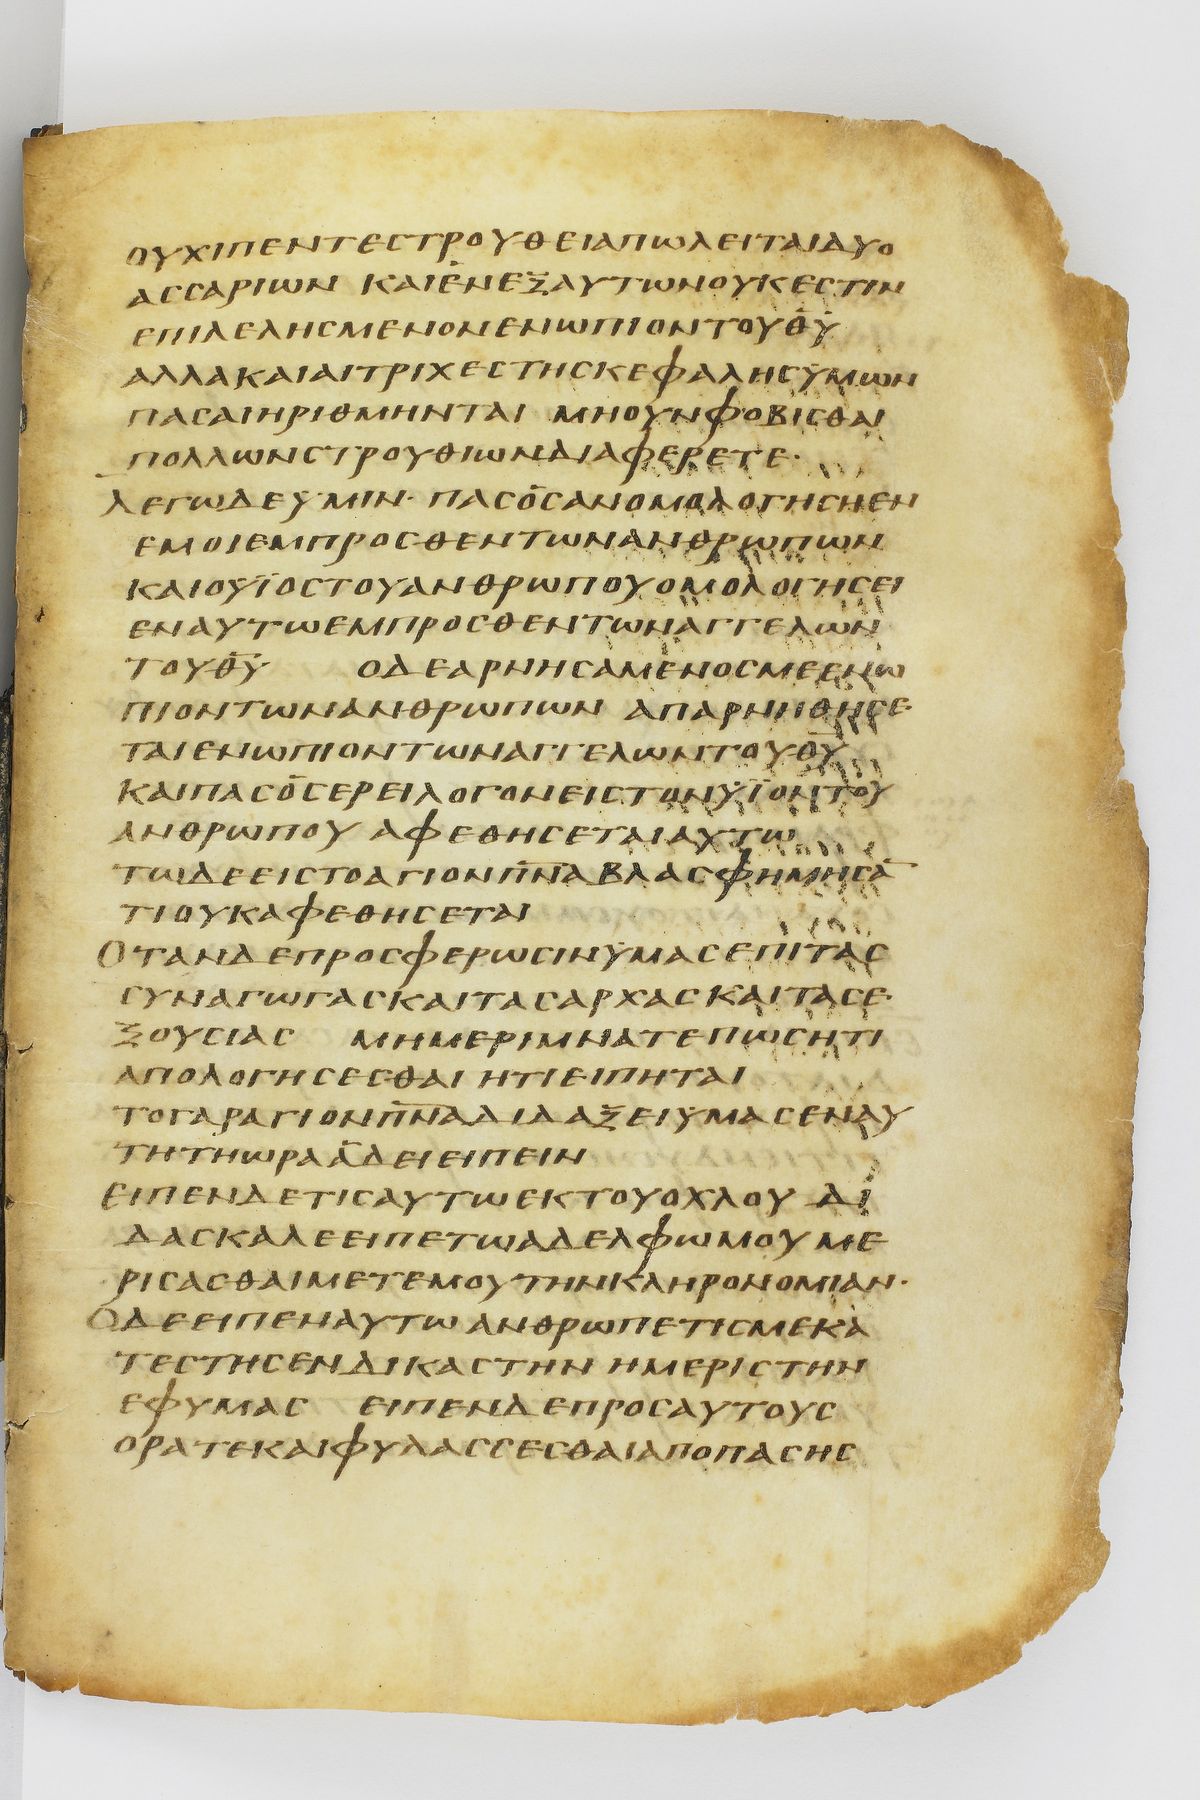 ΟΥΧΙΠΕΝΤΕϹΤΡΟΥΘΕΙΑΠΩΛΕΙΤΑΙΔΥΟ
ΑϹϹΑΡΙΩΝ ΚΑΙΕΝΕΞΑΥΤΩΝΟΥΚΕϹΤΙΝ
ΕΠΙΛΕΛΗϹΜΕΝΟΝΕΝΩΠΙΟΝΤΟΥΘ̅Υ̅
ΑΛΛΑΚΑΙΑΙΤΡΙΧΕϹΤΗϹΚΕΦΑΛΗϹΥΜΩΝ
ΠΑϹΑΙΗΡΙΘΜΗΝΤΑΙ ΜΗΟΥΝΦΟΒΙϹΘΑΙ
ΠΟΛΛΩΝϹΤΡΟΥΘΙΩΝΔΙΑΦΕΡΕΤΕ·
ΛΕΓΩΔΕΥΜΙΝ· ΠΑϹΟϹΑΝΟΜΟΛΟΓΗϹΗΕΝ
ΕΜΟΙΕΜΠΡΟϹΘΕΝΤΩΝΑΝΘΡΩΠΩΝ
ΚΑΙΟΥΪΟϹΤΟΥΑΝΘΡΩΠΟΥΟΜΟΛΟΓΗϹΕΙ
ΕΝΑΥΤΩΕΜΠΡΟϹΘΕΝΤΩΝΑΓΓΕΛΩΝ
ΤΟΥΘ̅Υ̅· ΟΔΕΑΡΝΗϹΑΜΕΝΟϹΜΕΕΝΩ
ΠΙΟΝΤΩΝΑΝΘΡΩΠΩΝ ΑΠΑΡΝΗΘΗϹΕ
ΤΑΙΕΝΩΠΙΟΝΤΩΝΑΓΓΕΛΩΝΤΟΥΘ̅Υ̅
ΚΑΙΠΑϹΟϹΕΡΕΙΛΟΓΟΝΕΙϹΤΟΝΥΪΟΝΤΟΥ
ΑΝΘΡΩΠΟΥ ΑΦΕΘΗϹΕΤΑΙΑΥΤΩ
ΤΩΔΕΕΙϹΤΟΑΓΙΟΝΠ̅Ν̅Α̅ΒΛΑϹΦΗΜΗϹΑ̅
ΤΙΟΥΚΑΦΕΘΗϹΕΤΑΙ
ΟΤΑΝΔΕΠΡΟϹΦΕΡΩϹΙΝΥΜΑϹΕΠΙΤΑϹ
ϹΥΝΑΓΩΓΑϹΚΑΙΤΑϹΑΡΧΑϹΚΑΙΤΑϹΕ
ΞΟΥϹΙΑϹ ΜΗΜΕΡΙΜΝΑΤΕΠΩϹΗΤΙ
ΑΠΟΛΟΓΗϹΕϹΘΑΙ ΗΤΙΕΙΠΗΤΑΙ
ΤΟΓΑΡΑΓΙΟΝΠ̅Ν̅Α̅ΔΙΔΑΞΕΙΥΜΑϹΕΝΑΥ
ΤΗΤΗΩΡΑΑΔΕΙΕΙΠΕΙΝ
ΕΙΠΕΝΔΕΤΙϹΑΥΤΩΕΚΤΟΥΟΧΛΟΥ ΔΙ
ΔΑϹΚΑΛΕΕΙΠΕΤΩΑΔΕΛΦΩΜΟΥΜΕ
ΡΙϹΑϹΘΑΙΜΕΤΕΜΟΥΤΗΝΚΛΗΡΟΝΟΜΙΑΝ·
ΟΔΕΕΙΠΕΝΑΥΤΩ ΑΝΘΡΩΠΕΤΙϹΜΕΚΑ
ΤΕϹΤΗϹΕΝΔΙΚΑϹΤΗΝ ΗΜΕΡΙϹΤΗΝ
ΕΦΥΜΑϹ ΕΙΠΕΝΔΕΠΡΟϹΑΥΤΟΥϹ
ΟΡΑΤΕΚΑΙΦΥΛΑϹϹΕϹΘΑΙΑΠΟΠΑϹΗϹ